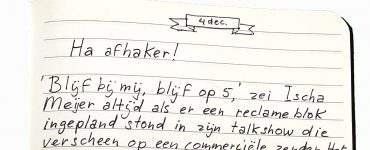 4 dec.
Ha afhaker!
'Blijf bij mij, blijf op 5,' zei Ischa
Meijer altijd als er een reclame blok
ingepland stond in zijn talkshow die
verscheen op een commerciële zender. Het